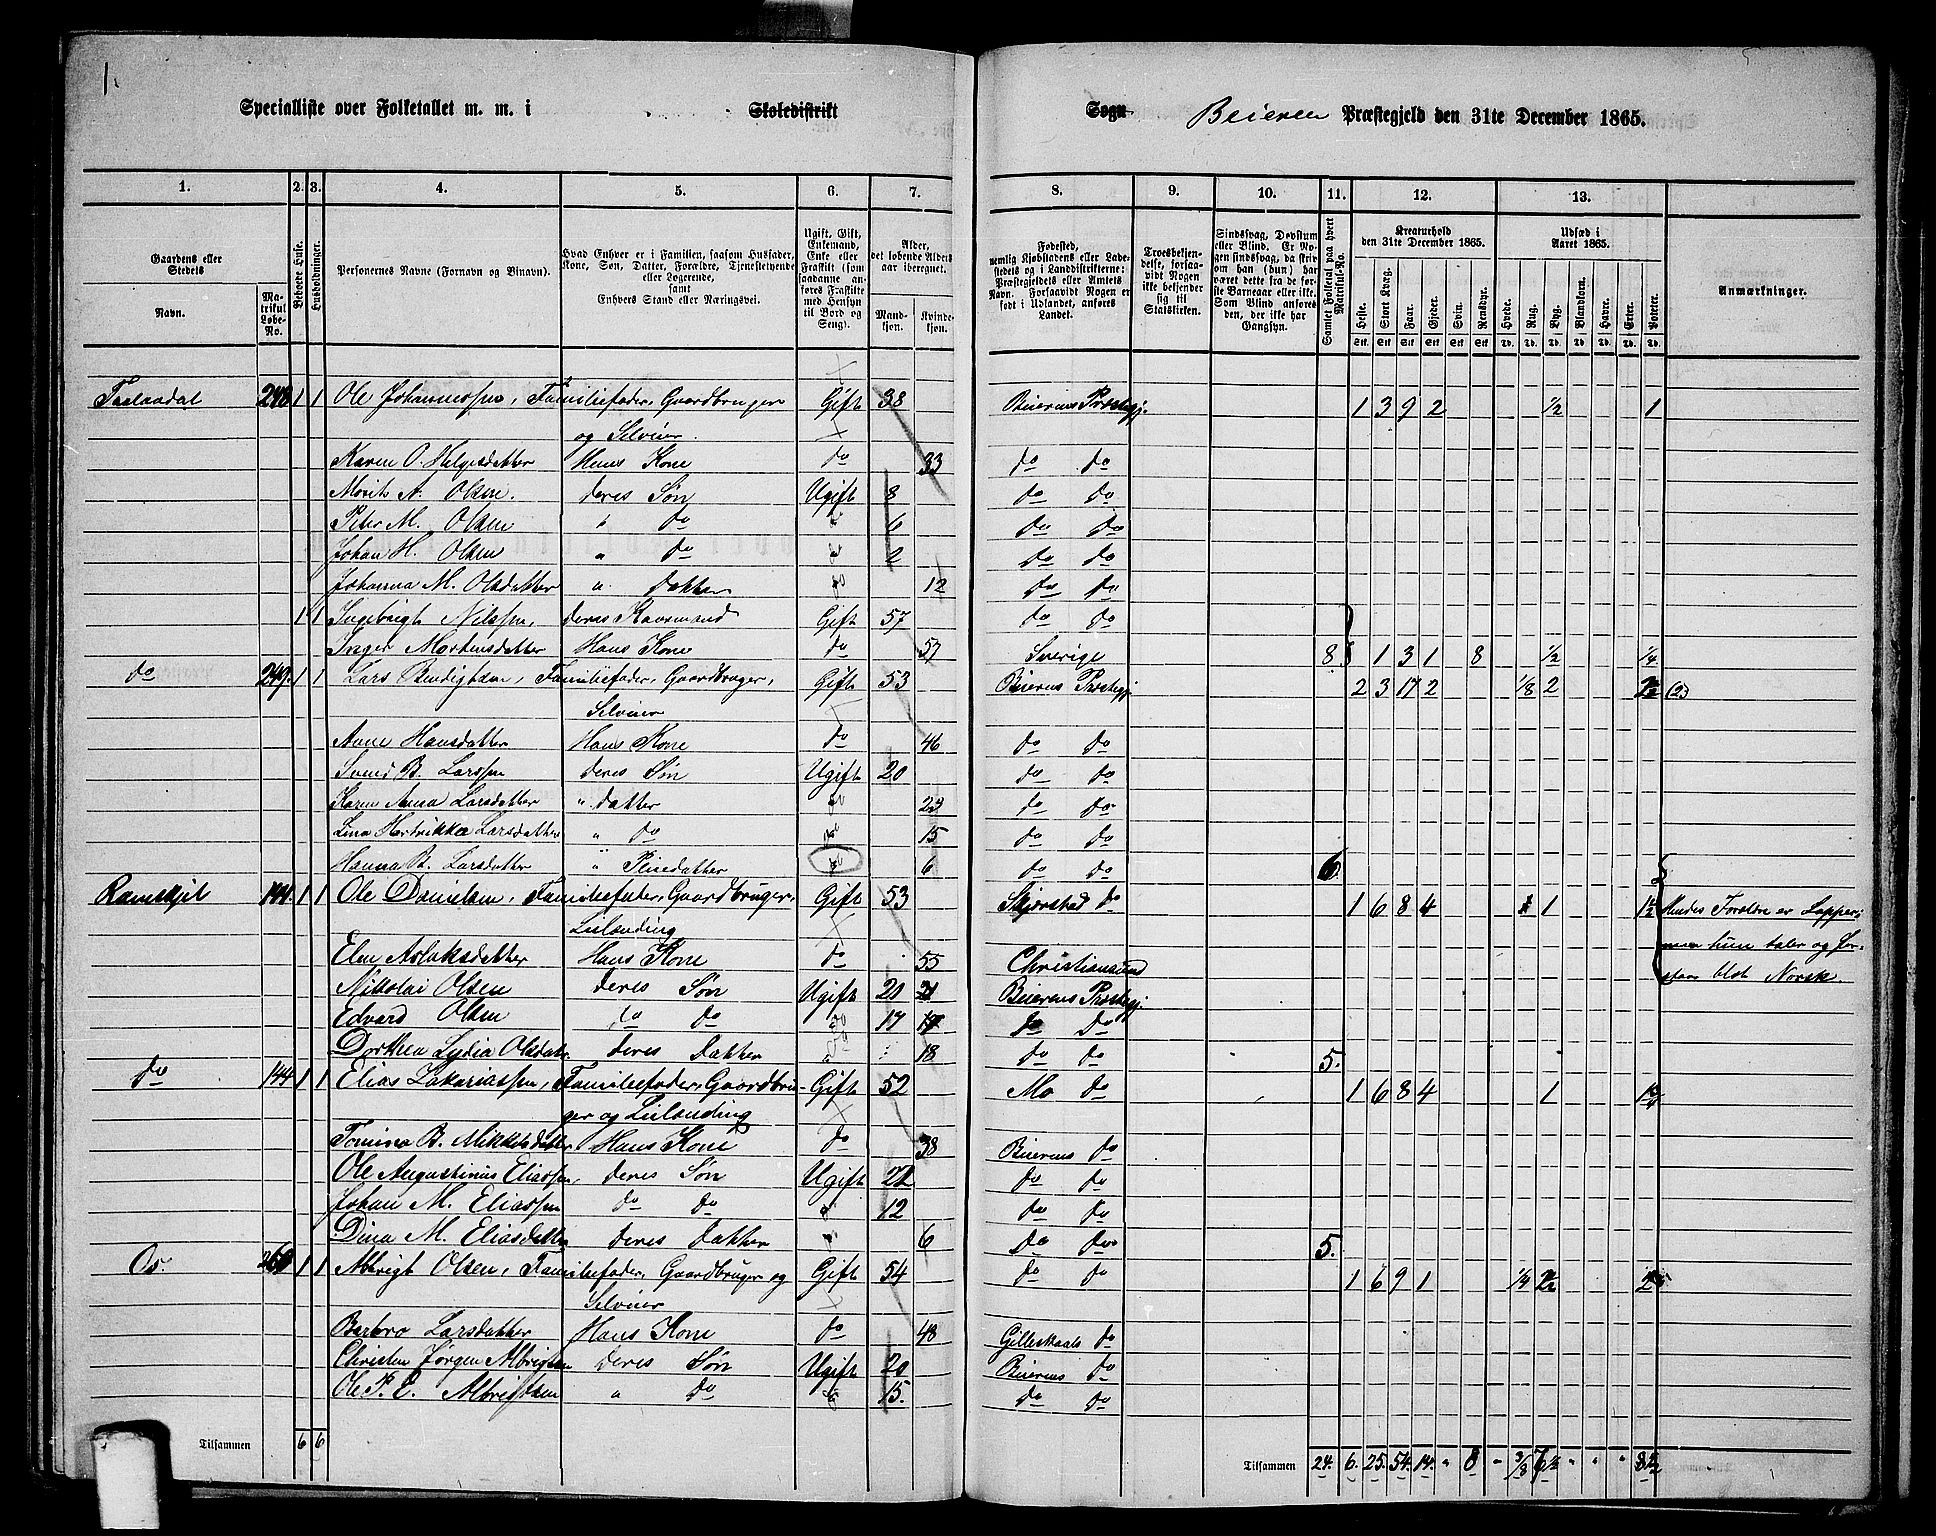 1.
5
Specialliste over Folketallet m. m. i Skoledistrikt Sogn Beieren Præstegjeld den 31te December 1865.
1. 2. 3. 4. 5. 6. 7. 8. 9. 10. 11. 12. 13.
Gaardens eller Stedets
Navn.
Matrikul Løbe-No.
Beboede Huse.
Husholdninger.
Personernes Navne (Fornavn og Tilnavn).
Hvad Enhver er i Familien, saasom Husfader, Kone, Søn, Datter, Forældre, Tjenestetyende eller Logerende, samt Enhvers Stand eller Næringsvei.
Ugift, Gift, Enkemand, Enke eller Fraskilt (som saadanne anføres Fraskilte med Hensyn til Bord og Seng).
Alder, det løbende Aldersaar iberegnet.
Mandkjøn.
Kvindekjøn.
Fødested, nemlig Kjøbstadens eller Ladestedets og i Landdistrikterne: Præstegjeldets eller Amtets Navn. Forsaavidt Nogen er født i Udlandet, anføres Landet.
Troesbekjendelse, forsaavidt Nogen ikke bekjender sig til Statskirken.
Sindssvag, Døvstum eller Blind. Er Nogen sindssvag, da skrives om han (hun) har været dette fra de første Barneaar eller ikke. Som Blind anføres den, der ikke har Gangsyn.
Samlet Folketal paa hvert Matrikul-No.
Kreaturhold den 31te December 1865.
Heste. Stort Kvæg. Faar. Gjeder. Svin. Rensdyr.
Udsæd i Aaret 1865.
Hvede. Rug. Byg. Blandkorn. Havre. Erter. Poteter.
Anmærkninger.
248 1 1 Ole Johannessen, Familiefader, Gaardbruger Gift 38 Beierens Præstegj. 1 3 9 2 1/2 1
og Selveier.
Karen O. Helgesdatter Hans Kone do 33 do do
Morits A. Olsen. deres Søn Ugift 8 do do
Peter M. Olsen " do 6 do do
Johan H. Olsen " do 2 do do
Johanna M. Olsdatter " Datter do 12 do do
1 1 Ingebrigt Nilssen, deres Gift 57 do do
Inger Mortensdatter Hans Kone do 57 Sverige 8 1 3 1 8 1/2 1/4
do 249. 1 1 Lars Bendigtsen, Familiefader, Gaardbruger, Gift 53 Beierens Præstegj. 2 3 17 2 1/8 2
Selveier
Anne Hansdatter Hans Kone do 46 do do
Svend B. Larssen deres Søn Ugift 20 do do
Karen Anna Larsdatter " datter do 23 do do
Lina Hendrikka Larsdatter " do do 15 do do
Hanna B. Larsdatter " Pleiedatter do 6 do do 6
Ramskjel 144. 1 1 Ole Danielsen, Familiefader, Gaardbruger, Gift 53 Skjerstad do 1 6 8 4 1 1 1/2 Hendes Forældre er Lapper;
Leilænding
Elen Aslaksdatter Hans Kone do 55 Christiansund men hun taler og for-
Nikolai Olsen deres Søn Ugift 21 Beierens Præstegj. staar blot Norsk.
Edvard Olsen do do do 17 do do
Dorthea Lydia Olsdatr deres Datter " 18 do do 5.
do 144 1 1 Elias Zakariassen, Familiefader, Gaardbru- Gift 52 Mo do 1 6 8 4 1
ger og Leilænding
Tomina B. Mikkelsdatter Hans Kone do 38 Beierens do
Ole Augustinus Eliassen, deres Søn Ugift 21 do do
Johan M. Eliassen do do 12 do do
Dina M. Eliasdatter deres Datter 6 do do 5.
Os. 260 1 1 Albrigt Olsen, Familiefader, Gaardbruger og Gift 54 do do 1 6 9 1 1/4
Selveier
Barbro Larsdatter Hans Kone do 48 Gilleskaals do
Christen Jørgen Albrigtsen deres Søn Ugift 20 Beierens do
Ole P. C. Albrigtsen " do 15. do do
Tilsammen 6 6
Tilsammen 24. 6. 25. 54. 14. " 8 " 3/8 " " "